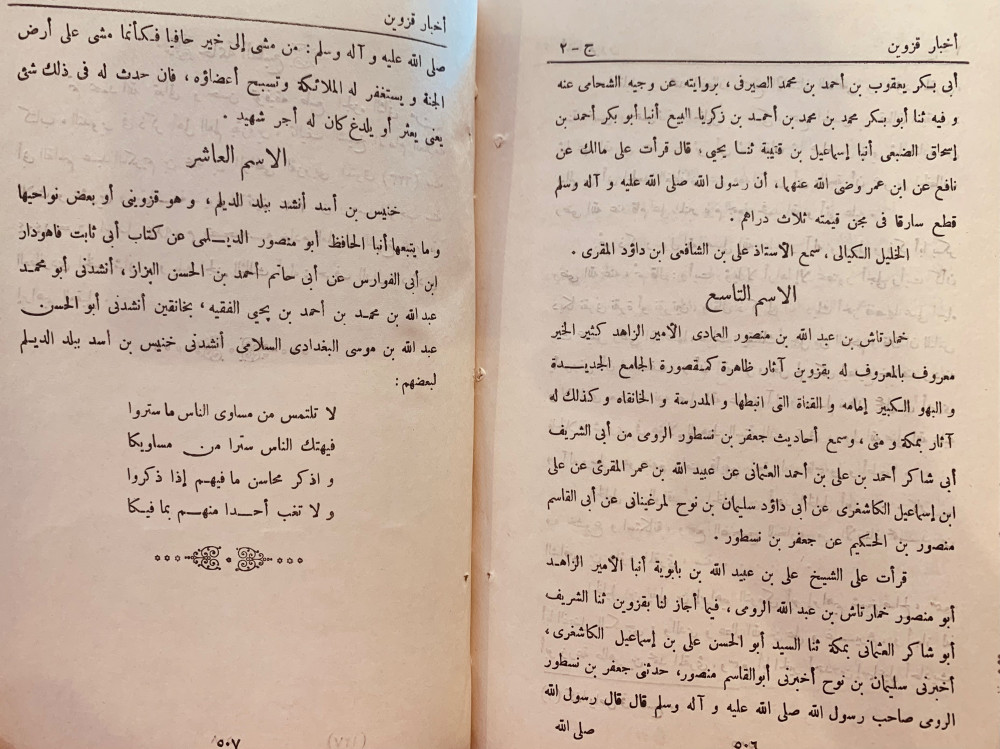 أخبار قزوين ج - ٢
أبى بـكر يعقوب بن أحمد بن محمد الصيرفى، بروايته عن وجيه الشحامى عنه
و فيه ثنا أبو بـكر محمد بن محمد بن أحمـد بن زكريا البيع أنبا أبو بكر أحمد بن
إسحاق الضبعى أنبا إسماعيل بن قتيبة ثنـا يحيى، قال قرأت على مالك عن
نافع عن ابن عمر رضى الله عنهما، أن رسول الله صلى الله عليه و آله وسلم
قطع سارقا فى مجن قيمته ثلاث دراهم .
الخليل الكيالى، سمع الأستاذ على بن الشافعى ابن داؤد المقرى .
الاسم التاسع
خمارتاش بن عبد الله بن منصور العمادى الأمير الزاهد كثير الخير
معروف بالمعروف له بقزوين آثار ظاهرة كمـقصورة الجامع الجديـــدة
و البهو الـكبير إمامه و القناة التى انبطها و المدرسة و الخانقاه و كذلك له
آثار بمكة و منى، وسمع أحاديث جعفر بن نسطور الرومى من أبى الشريف
أبى شاكر أحمد بن على بن أحمد العثمانى عن عبيد الله بن عمر المقرئ عن على
ابن إسماعيل الكاشغرى عن أبى داؤد سليمان بن نوح لمرغينانى عن أبى القاسم
منصور بن الحـكيم عن جعفر بن نسطور .
قرأت على الشيـخ على بن عبيد الله بن بابوية أنبا الأمير الزاهـد
أبو منصور خمارتاش بن عبد الله الرومى، فيما أجاز لنا بقزوين ثنا الشريف
أبو شاكر العثمانى بمكة ثنا السيد أبو الحسن على بن إسماعيل الكاشغرى،
أخبرنى سليمان بن نوح أخبرنى أبوالقاسم منصور، حدثنى جعفر بن نسطور
الرومى صاحب رسول الله صلى الله عليه و آله وسلم قال قال رسول الله
صلى الله
٥٠٦
أخبار قزوين
صلى الله عليه و آله وسلم : من مشى إلى خير حافيا فـكأنما مشى على أرض
الجنة و يستغفر له الملائـكة وتسبـح أعضاؤه، فان حدث له فى ذلك شئ
يعنى يعثر أو يلدغ كان له أجر شهيد .
الاسم العاشر
خنيس بن أسد أنشد ببلد الديلم، و هو قزوينى أو بعض نواحيها
و ما يتبعها أنبا الحافظ أبو منصور الديـــلمى عن كتاب أبى ثابت فاهودار
ابن أبى الفوارس عن أبى حاتم أحمد بن الحسن البزاز، أنشدنى أبو محمـد
عبدالله بن محمـد بن أحمد بن يحيى الفقيه، بخانقين أنشدنى أبو الحسن
عبد الله بن موسى البغدادى السلامى أنشدنى خنيس بن أسد ببلد الديـلم
لبعضهم:
لا تلتمس من مساوى الناس ما ستروا
فيهتك الناس سترا من مساويكا
و اذكر محاسن ما فيهـم إذا ذكروا
و لا تغب أحـــدا منهـــم بما فيـكا
٥٠٧